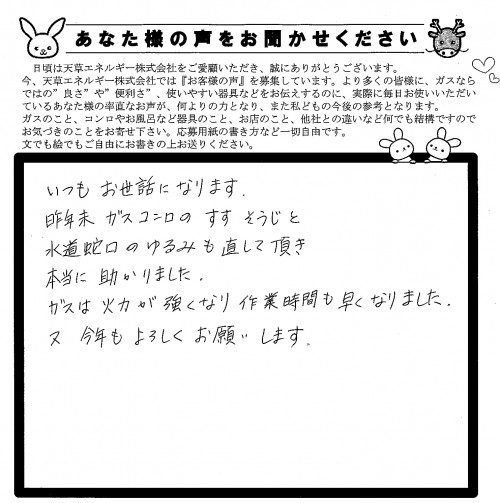 あなた様の声をお聞かせください
日頃は天草エネルギー株式会社をご愛顧いただき、誠にありがとうございます。
今、天草エネルギー株式会社では『お客様の声』を募集しています。より多くの皆様に、ガスなら
ではの”良さ”や”便利さ”、使いやすい器具などをお伝えするのに、実際に毎日お使いいただい
ているあなた様の率直なお声が、何よりの力となり、また私どもの今後の参考となります。
ガスのこと、コンロやお風呂など器具のこと、お店のこと、他社との違いなど何でも結構ですので
お気づきのことをお寄せ下さい。応募用紙の書き方など一切自由です。
文でも絵でもご自由にお書きの上お送りください。
いつも お世話になります.
昨年末 ガスコンロの すす そうじと
水道蛇口のゆるみも直して頂き
本当に 助かりました.
ガスは 火力が 強くなり 作業時間も早くなりました.
又 今年も よろしく お願い します.